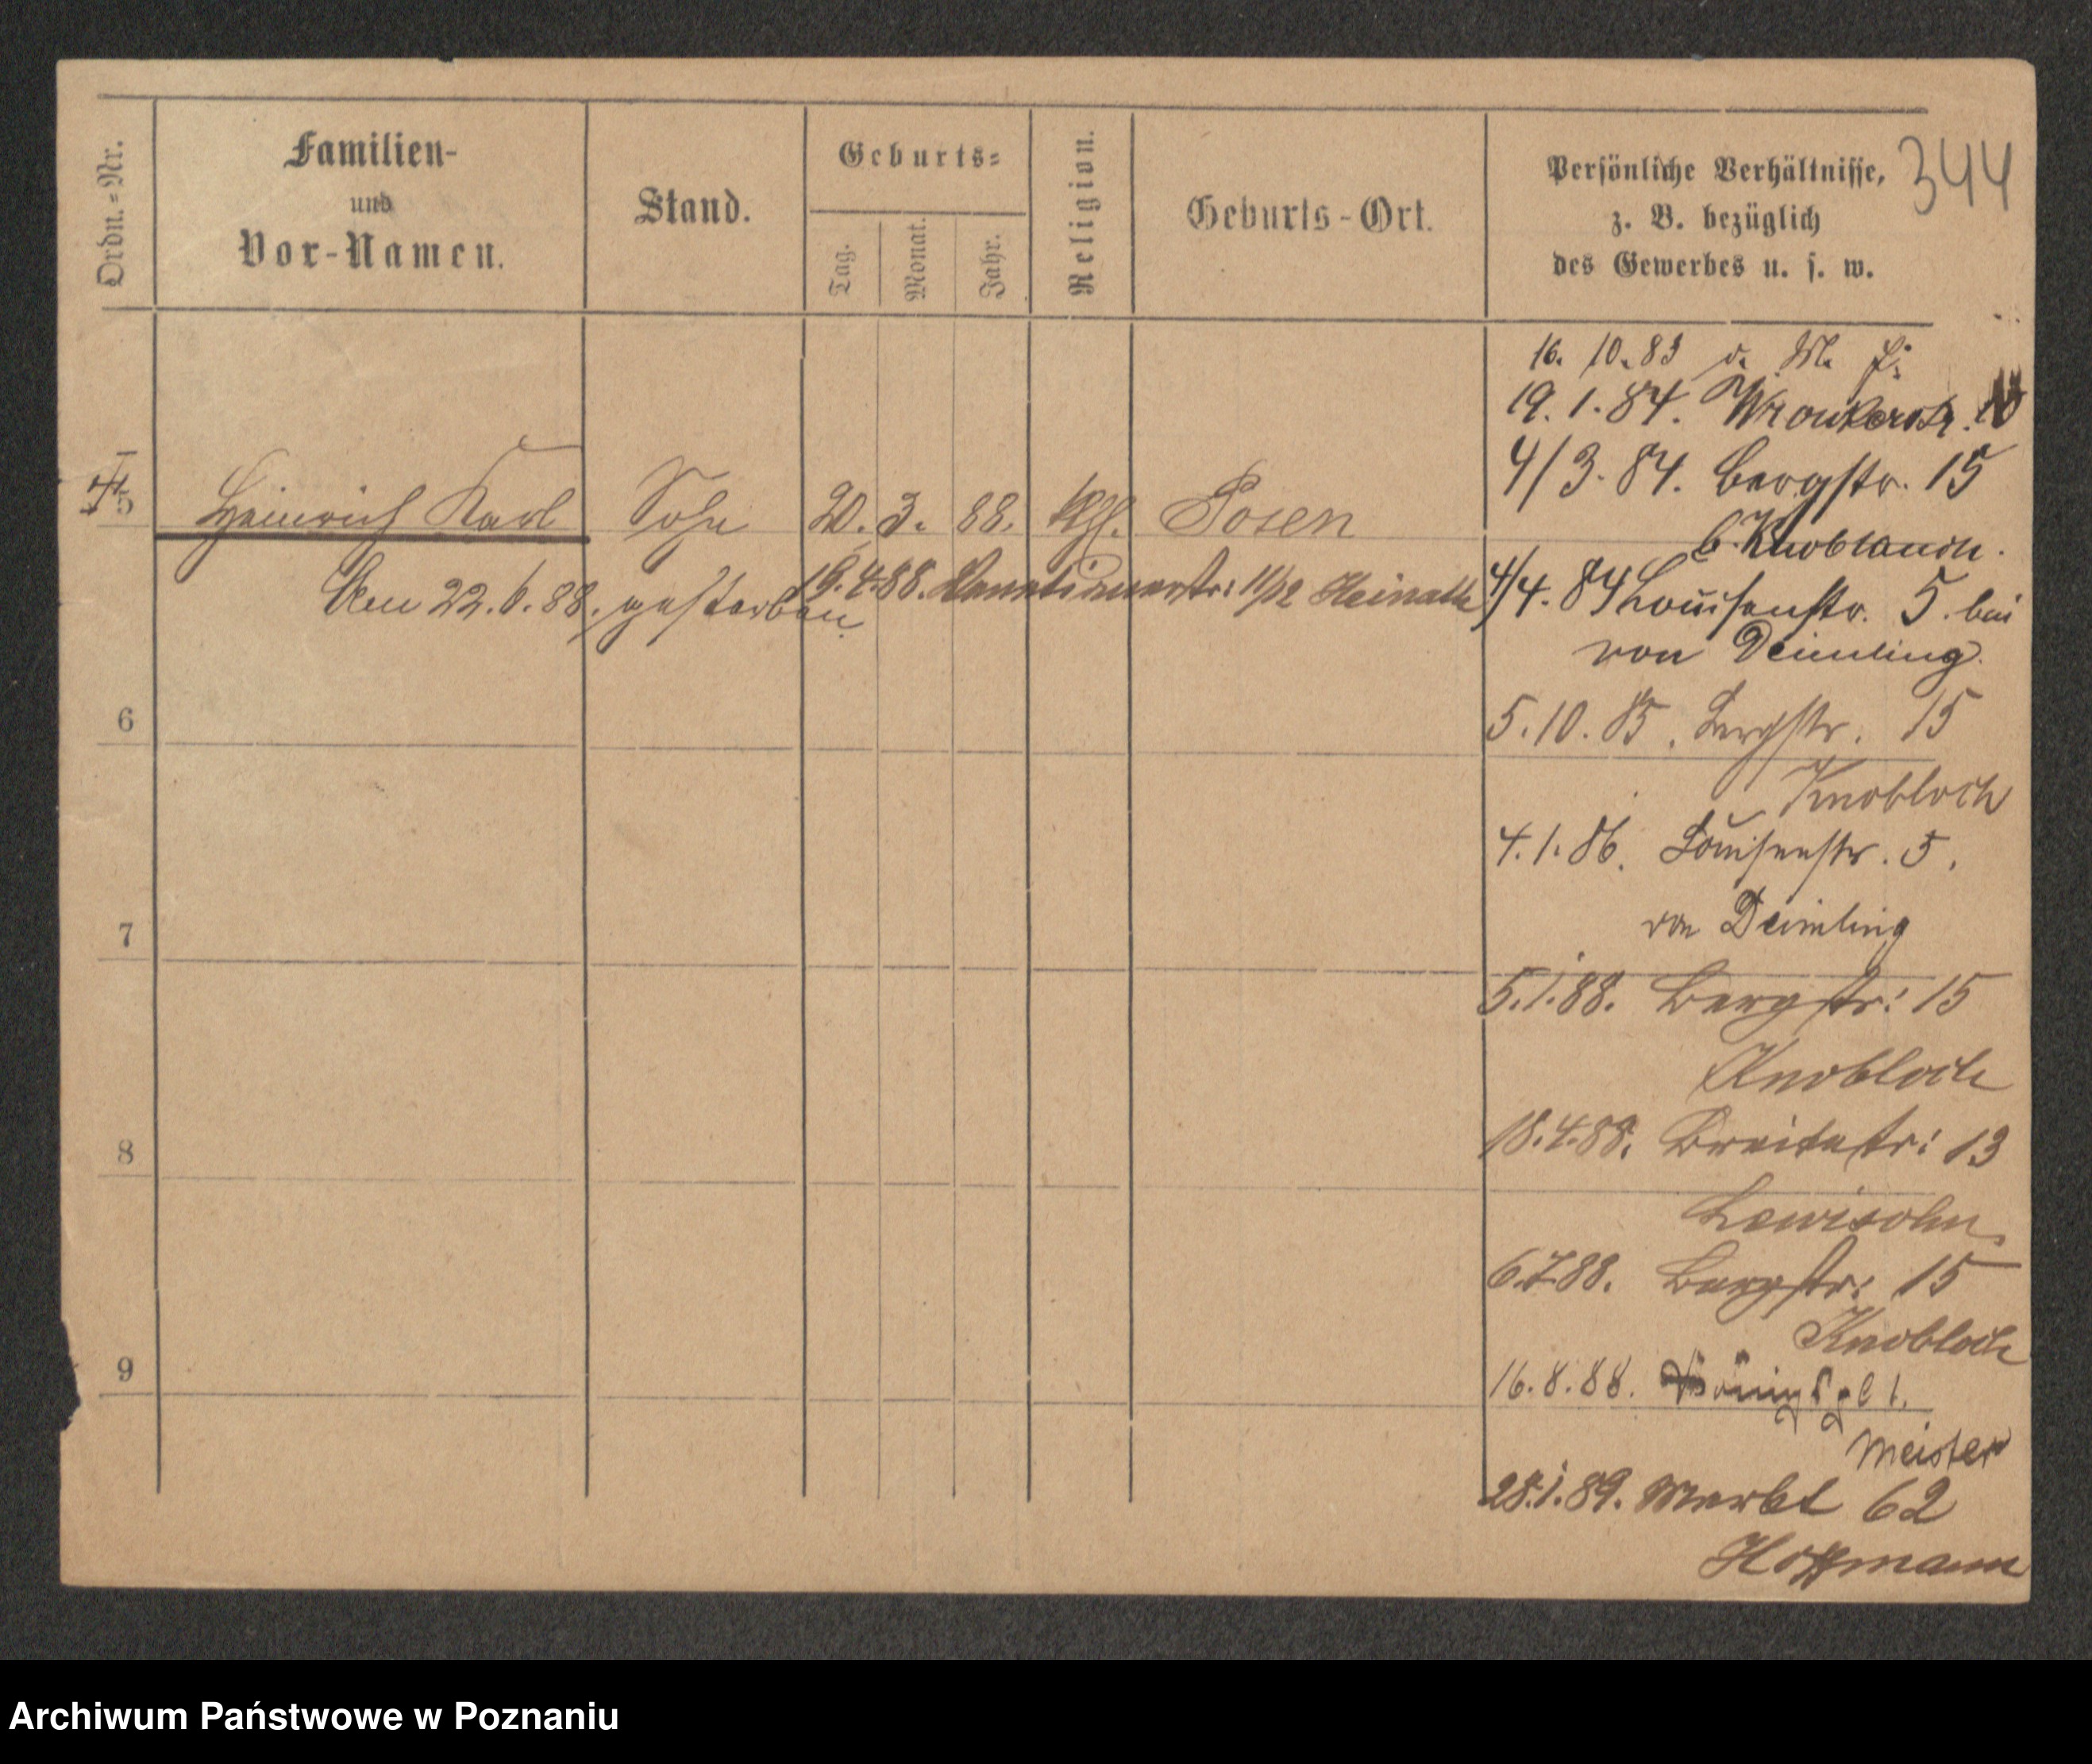 344
Ordn.=Nr.
Familien-
und
Vor-Namen.
Stand.
Geburts=
Tag.
Monat.
Jahr.
Religion.
Geburts-Ort.
Persönliche Verhältnisse,
z. B. bezüglich
des Gewerbes u. s. w.
16. 10. 83 v. M.
19. 1. 84. Wronkerstr.
4/3. 84. Bergstr. 15
b. Knoblauch.
5 Heinrich Karl Sohn 20. 3. 88. Posen
Den 22. 6. 88. gestorben
19. 4. 88. 11/12 Heinath
4/4. 84 Louisenstr. 5. bei
von Deimling.
6
5. 10. 85. Bergstr. 15
Knobloch
4. 1. 86. Louisenstr. 5.
von Deimling
7
5. 1. 88. Bergstr: 15
Knobloch
18. 4. 88. Breitestr: 13
8
Lewisohn
6. 7. 88. Bergstr: 15
Knobloch
9
16. 8. 88. Königspl 1.
Meister
28. 1. 89. Markt 62
Hoffmann
Archiwum Państwowe w Poznaniu